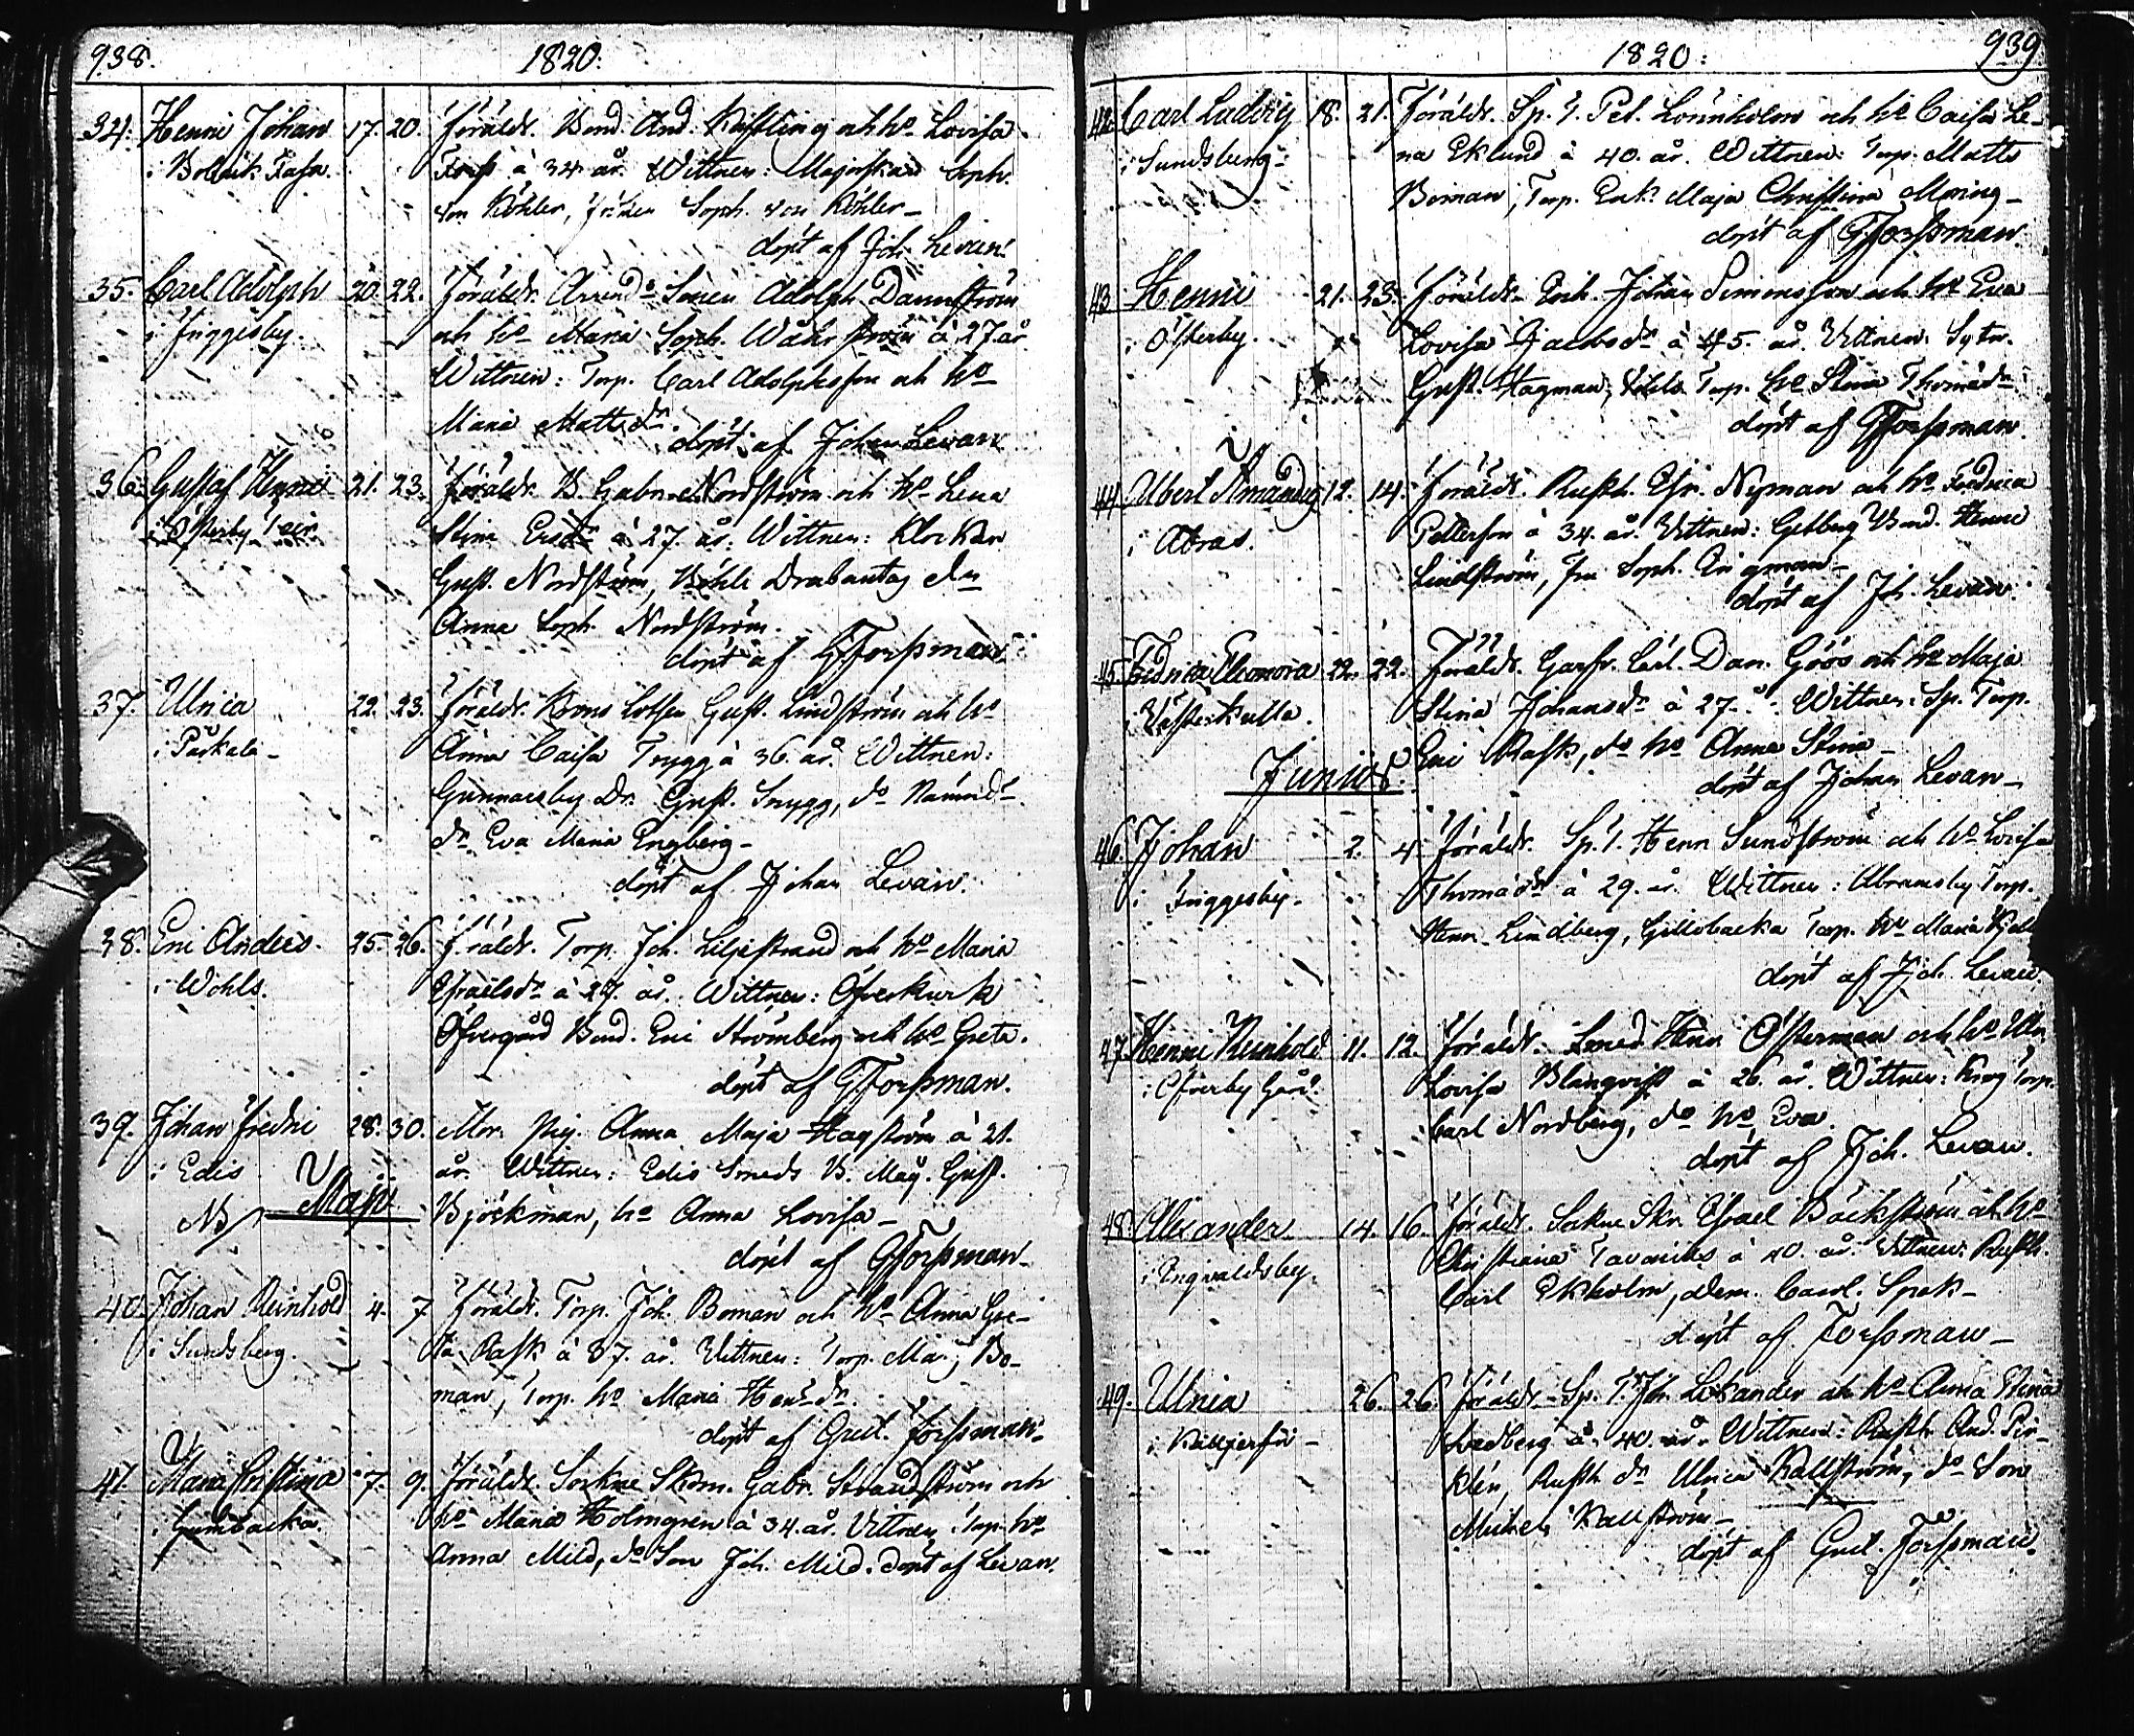 938.
1820:
34. Henric Johan 17. 20. föräldr. Bond. And. Kuhling och ho Lovisa
i Bolvik Fasa. Forss à 34 år. Wittnen: Majorskan Soph.
von Köhler, fröken Soph. von Köhler_
döpt af Joh. Levan.
35. Carl Adolph 20. 22. föräldr. Arrend. Sonen Adolph Dannström
i Ingesby. och ho Maria Soph. Wåhrström à 27 år
Wittnen: Torp. Carl Adolphsson och ho
Maria Mattsdr.
döpt af Johan Levan
36. Gustaf Henric 21. 23. föräldr. B. Gabriel Nordström och ho Lena
i Österby Stina Ersdr à 27. år. Wittnen: Klockar
Gust. Nordström, Wohls Drabantag dn
Anna Soph. Nordström.
döpt af GForssman
37. Ulrica 22. 23. föräldr. Krono Lotsen Gust. Lindström och ho
i Pårkala_ Anna Caisa Trygg à 36. år. Wittnen:
Gunnarsby Dr. Gust. Snygg, do Nämnd.
dr Eva Maria Engberg_
döpt af Johan Levan.
38. Eric Anders. 25. 26. föräldr. Torp. Joh. Liljestrand och ho Maria
i Wohls. Esraelsdr à 27. år. Wittnen: Öfverkurk
Öfvergård Bond. Eric Strömberg och ho Greta.
döpt af GForssman.
39. Johan Fredric 28. 30. Mor. Pig. Anna Maja Hagström à 21.
i Edis år. Wittnen: Edis Smeds B. Måg. Gust.
Björkman, ho Anna Lovisa_
döpt af GForssman_
Maji
40. Johan Reinhold 4. 7 föräldr. Torp. Joh. Boman och ho Anna Gre-
i Sundsberg. ta Rask à 37. år. Vittnen: Torp. Bo-
man, Torp. ho Maria Henrsdr.
döpt af Gust. Forssman_
41. Maria Christina 7. 9. föräldr. Sockne Skom. Gabr. Strandström och
i Gumbacka. ho Maria Holmgren à 34. år. Vittnen: Torp. ho
Anna Mild, do Son Joh. Mild. döpt af Levan.
1820:
939
42. Carl Ludvig 18. 21. föräldr. Sp. T. Pet. Lönnholm och ho Caisa Le-
i Sundsberg_ na Eklund à 40. år. Wittnen: Torp. Matts
Boman, Torp. Enk. Maja Christina Moring_
döpt af GForssman.
43 Henric 21. 23. föräldr. Johan Simonsson och ho Eva
i Österby. Lovisa Jacobsdr à 45. år. Vittnen: Sytn.
Gust. Hagman, Wohls Torp. ho Stina Thomædr
döpt af GForssman.
44 Albert Amandus 12. 14. föräldr. Rusth. Esr. Nyman och ho Fredrica
i Abras. Petterson à 34. år. Vittnen: Getberg Bond. Henric
Lindström, fru Soph. Ringman_
döpt af Joh. Levan.
45. Fredrica Eleonora 22. 22. föräldr. Garfv. Carl. Dan. Göös och ho Maja
i Västerkulla. Stina Johansdr à 27. Wittnen: Sp. Torp.
Eric Rask, do ho Anna Stina_
döpt af Johan Levan_
Junius.
46. Johan 2. 4. föräldr. Sp. T. Henr Sundström och ho Lovisa
i Ingesby. Thomædr à 29. år. Wittnen: Abramsby Torp.
Henr. Lindberg, Gillobacka Torp. ho Maria
döpt af Joh. Levan.
47. Henric Reinhold 11. 12. föräldr. Smed. Henr Österman och ho Ulr.
i Öfverby Gård. Lovisa Blanqvist à 26. år. Wittnen: Krog Torp.
Carl Nordberg, do ho Eva.
döpt af Joh. Levan.
48. Alexander 14. 16. föräldr. Sockne Skr. Esrael Bäckström och ho
i Ingvaldsby. Christiana Tavonius à 40. år. Vittnen: Rusth.
Carl Ekholm, Dem. Carol. Spek_
döpt af Forssman_
49. Ulrica 26. 26. föräldr. Sp. T. Joh. Lekander och ho Anna Stina
i Källjerfvi_ Lindberg à 40. år. Wittnen: Rusth. And. Pir-
klén, Rusth dr Ulrica Kallström, do Son
Michel Kallström_
döpt af Gust. Forssman.